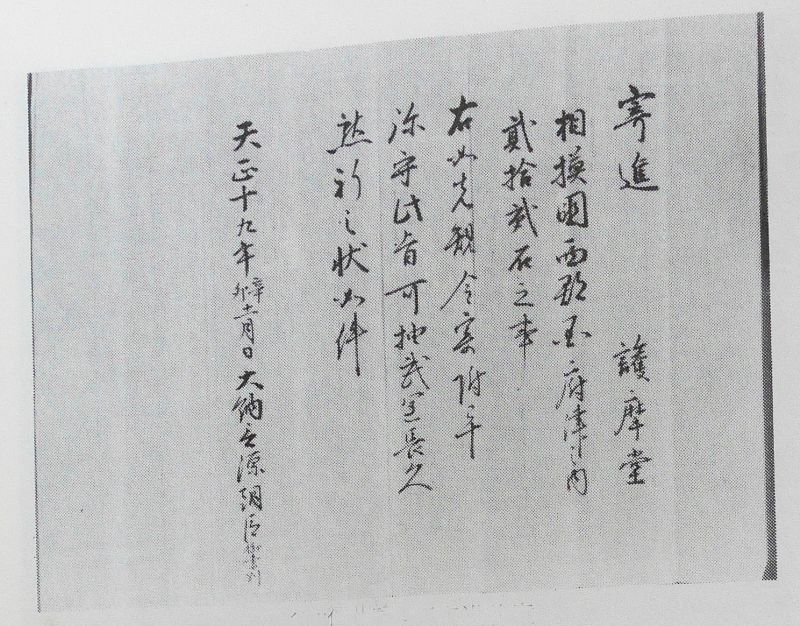 寄進　護摩堂
相摸國西郡国府津之内
貳拾貳石之事
右如先規令寄附畢
弥守此旨可抽武運長久
懇祈之状如件
天正十九年辛卯十一月日大納言源朝臣御書判